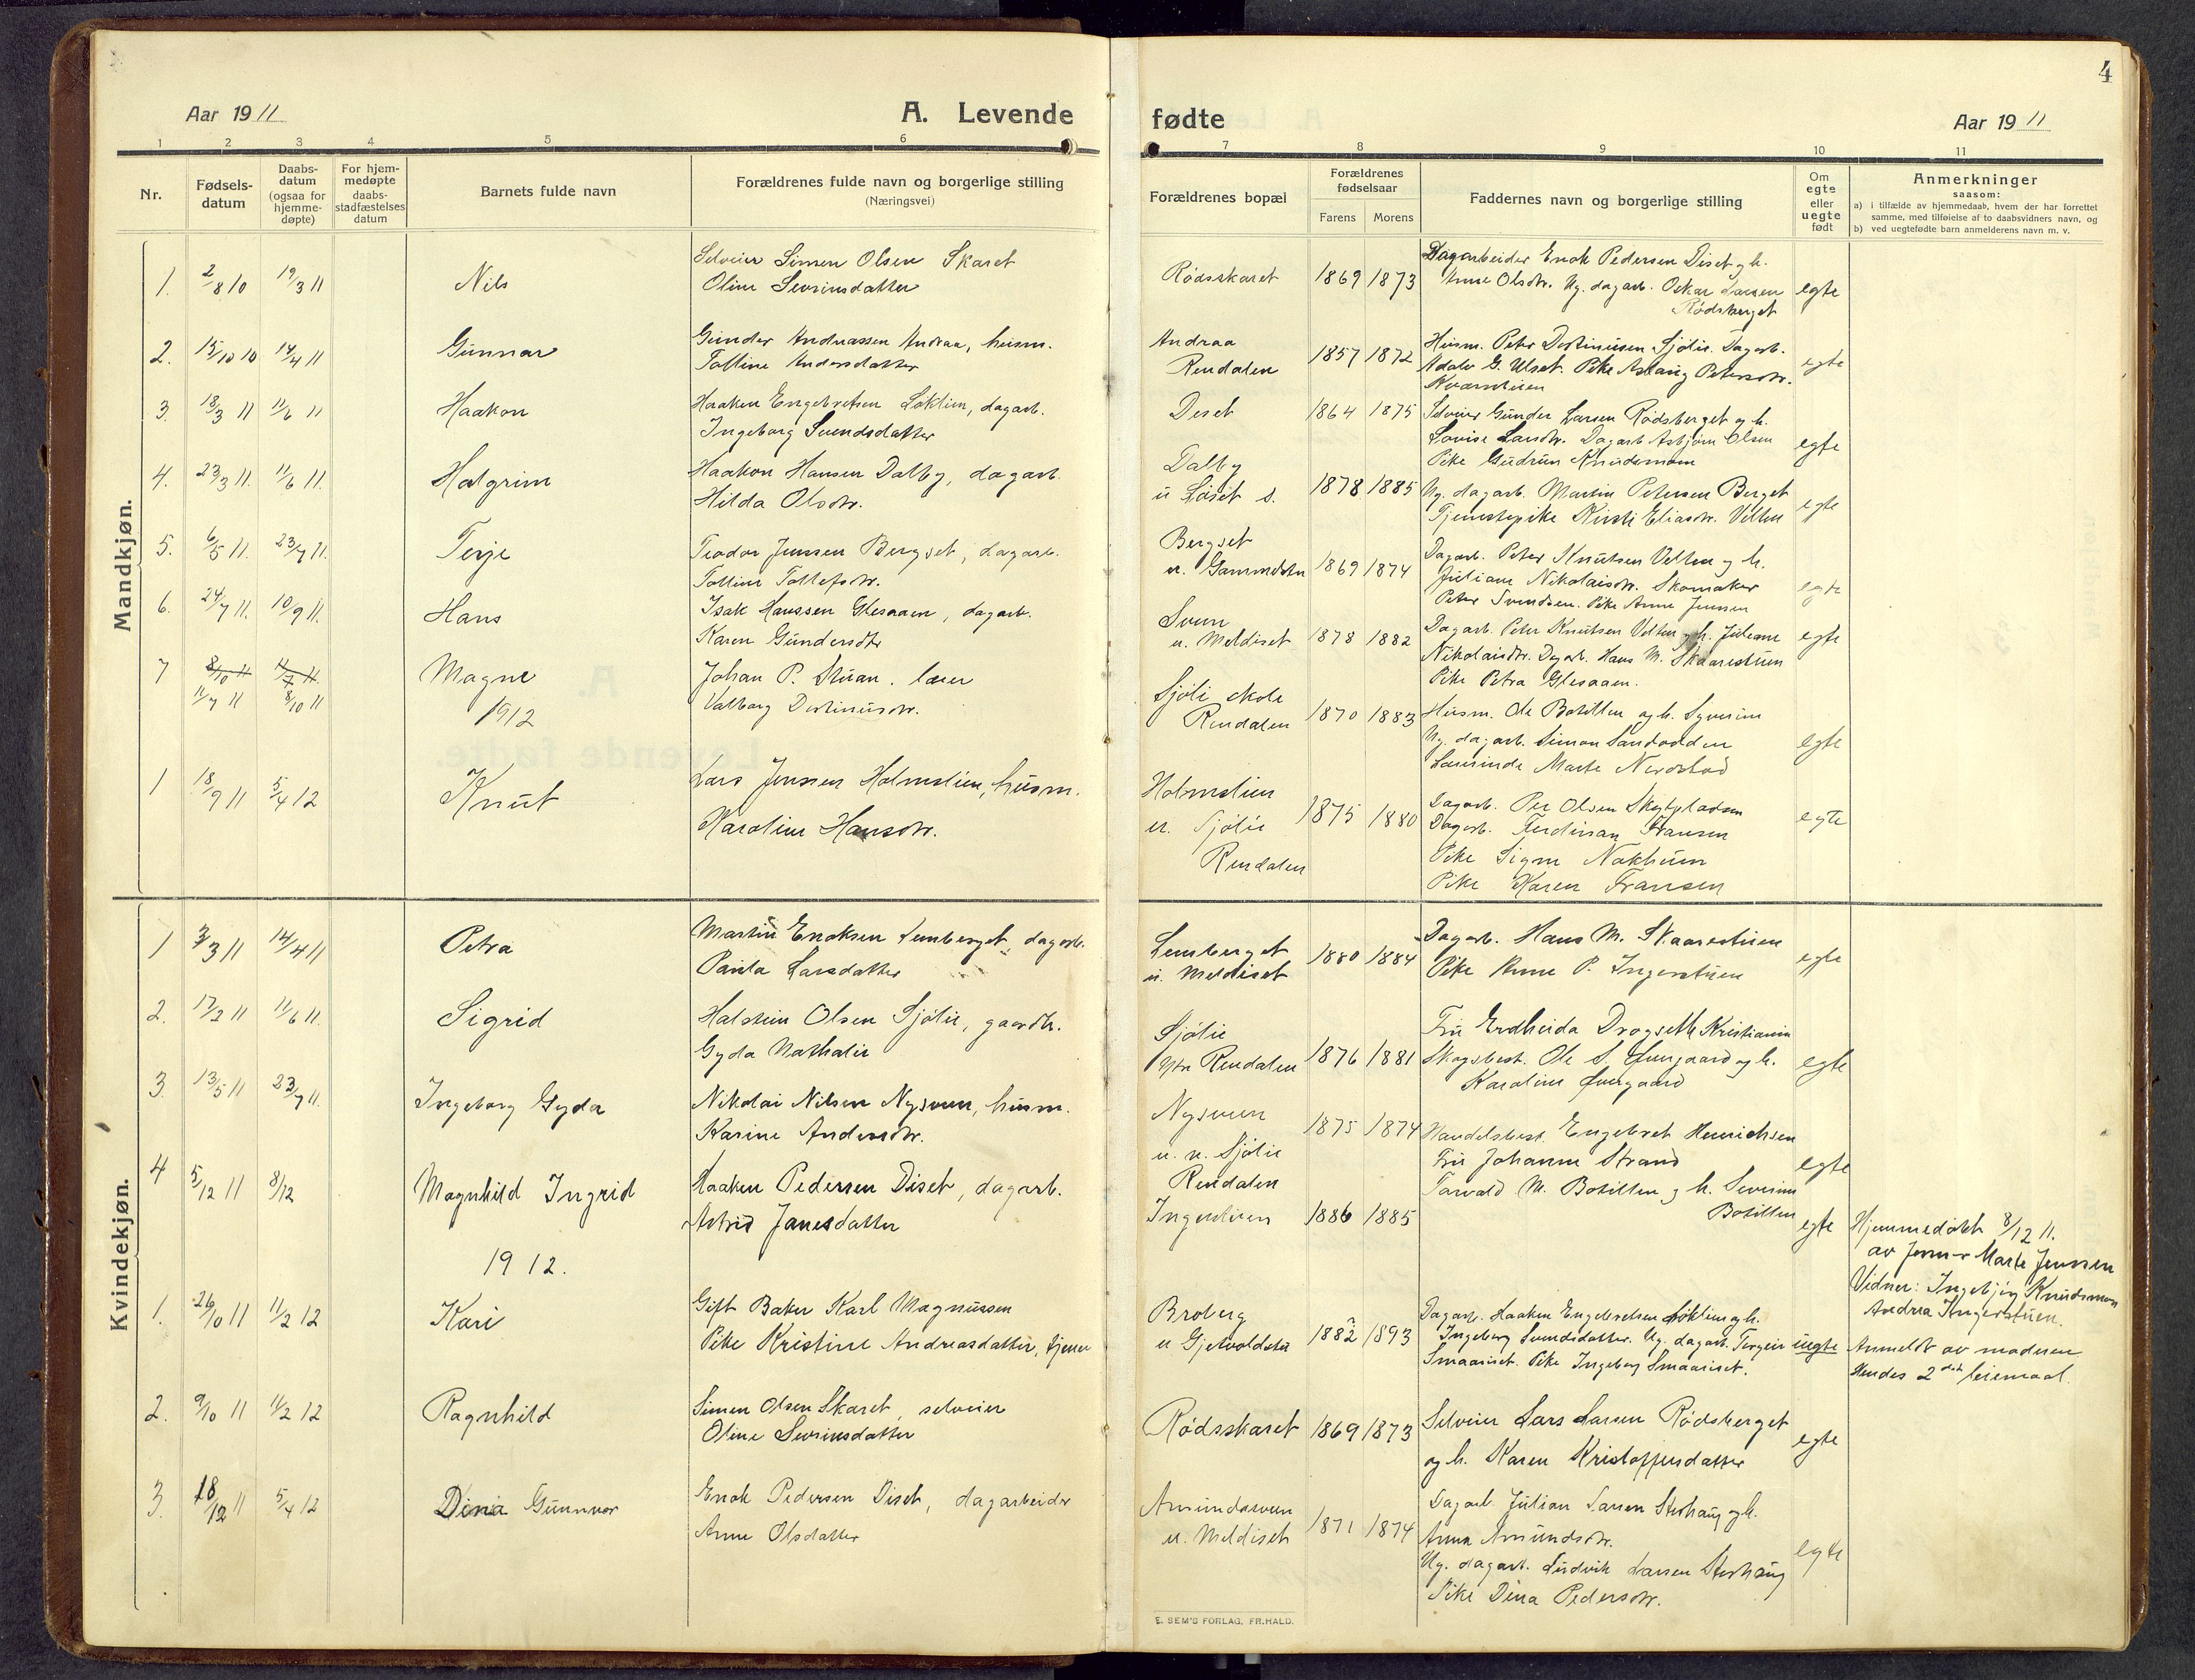 4
Aar 1911
A. Levende
fødte
Aar 1911
1 2 3 4 5 6 7 8 9 10 11
Nr.
Fødsels-
datum
Daabs-
datum
(ogsaa for
hjemme-
døpte)
For hjem-
medøpte
daabs-
stadfæstelses
datum
Barnets fulde navn
Forældrenes fulde navn og borgerlige stilling
(Næringsvei)
Forældrenes bopæl
Forældrenes
fødselsaar
Farens
Morens
Faddernes navn og borgerlige stilling
Om
egte
eller
uegte
født
Anmerkninger
saasom:
a) i tilfælde av hjemmedaab, hvem der har forrettet
samme, med tilføielse af to daabsvidners navn, og
b) ved uegtefødte barn anmelderens navn m. v.
Mandkjøn.
1. 2/8 10 19/3 11 Nils
Selveier Simen Olsen Skaret
Oline Sevrinsdatter
Rödsskaret 1869 1873
Dagarbeider Enok Pedersen Diset og h.
Anne Olsdtr. Ug. dagarb. Oskar Larsen
Rödsberget
egte
2. 15/10 10 14/4 11 Gunnar
Gunder Andreassen Andraa, husm.
Tolline Andersdatter
Andraa
Rendalen
1857 1872
Husm. Peter Dortinusen Sjölie. Dagarb.
Adalv G. Ulset. Pike Aslaug Petersdtr.
Kværnstuen
egte
3. 18/3 11 11/6 11 Haakon
Haaken Engebretsen Löklien, dagarb.
Ingeborg Svendsdatter
Deset 1864 1875
Selveier Gunder Larsen Rödsberget og h.
Lovise Larsdtr. Dagarb Asbjörn Olsen
Pike Gudrun Knudsmoen
egte
4. 23/3 11. 11/6 11. Halgrim
Haakon Hansen Dalby, dagarb.
Hilda Olsdtr.
Dalby
u Löset s.
1878 1885
Ug. dagarb. Martin Petersen Berget
Tjenestepike Kirsti Eliasdtr. Velten
egte
5. 6/5 11. 23/7 11. Terje
Teodor Jensen Bergset, dagarb.
Tolline Tollefsdtr.
Bergset
u. Gammelstu
1869 1874
Dagarb. Peter Knutsen Velten og h.
Juliane Nikolaisdtr. Skomaker
Peter Svendsen. Pike Anne Jensen
egte
6. 24/7 11. 10/9 11. Hans
Isak Hanssen Glesaaen, dagarb.
Karen Gundersdtr
u. Meldiset 1878 1882
Dagarb. Peter Knutsen Velten og h. Juliane
Nikolaisdtr. Dagarb. Hans M. Skaarestuen
Pike Petra Glesaaen.
egte
7 8/10 11 11/7 11 Magne
11/7 11 8/10 11
Johan P. Stuan. lærer
Valborg Dortinusdtr.
Sjöli skole
Rendalen
1870 1883
Husm. Ole Botilten og h. Syverine
Ug. dagarb. Simon Sandodden
Lærerinde Marte Nordstad
egte
1912
1 18/9 11 5/4 12 Knut
Lars Jenssen Holmstien, husm.
Karoline Hansdtr.
Holmstien
u. Sjölie
Rendalen
1875 1880
Dagarb. Per Olsen Skytpladsen
Dagarb. Ferdinan Fransen
Pike Signe Nokhuen
Pike Karen Fransen
egte
Kvindekjøn.
1 3/3 11 14/4 11 Petra
Martin Enoksen Lemberget, dagarb.
Paula Larsdatter
Lemberget
u. Meldiset
1880 1884
Dagarb. Hans M. Skaarestuen
Pike Anne P. Ingerstuen
egte
2. 17/2 11 11/6 11. Sigrid
Halstein Olsen Sjölie, gaardbr.
Gyda Nathalie
Sjölie
Ytre Rendalen
1876 1881
Fru Erdheida Drogseth Kristiania
Skogsbest. Ole S. Øvergaard og h.
Karoline Øvergaard
egte
3. 13/5 11 23/7 11. Ingeborg Gyda
Nikolai Nilsen Nysveen, husm.
Karine Andersdtr.
Nysveen
u. n. Sjölie
Rendalen
1875 1874
Handelsbest. Engebret Henrichsen
Fru Johanne Strand
Torvald M. Botilten og h. Severine
Botilten
egte
4 5/12 11 8/12 Magnhild Ingrid
Haaken Pedersen Diset, dagarb.
Astrid Janesdatter
Ingerstuen 1886 1885
egte
Hjemmedöbt 8/12 11.
av Marte Jenssen
Vidner: Ingebjörg Knudsmoen
Andrea Ingerstuen.
1912.
1. 26/10 11 11/2 12 Kari
Gift Baker Karl Magnussen
Pike Kristine Andreasdatter, tjener
Broberg
u Gjetvoldstu
1882 1893
Dagarb. Haaken Engebretsen Löklien og h.
Ingeborg Svendsdatter. Ug. dagarb. Torgeir
Smaariset. Pike Ingeborg Smaariset.
uegte
Anmeldt av moderen
Hendes 2det leiermaal.
2. 9/10 11 11/2 12 Ragnhild
Simen Olsen Skaret, selveier
Oline Sevrinsdatter
Rödsskaret 1869 1873
Selveier Lars Larsen Rödsberget
og h. Karen Kristoffersdatter
egte
3. 18/12 11 5/4 12 Dina Gunnvor
Enok Pedersen Diset, dagarbeider
Anne Olsdatter
Amundsveen
u. Meldiset
1871 1874
Dagarb. Julian Larsen Storhaug og h.
Anna Amundsdtr.
Ug. dagarb. Ludvik Larsen Storhaug
Pike Dina Pedersdtr.
egte
E. SEM'S FORLAG, FR.HALD.